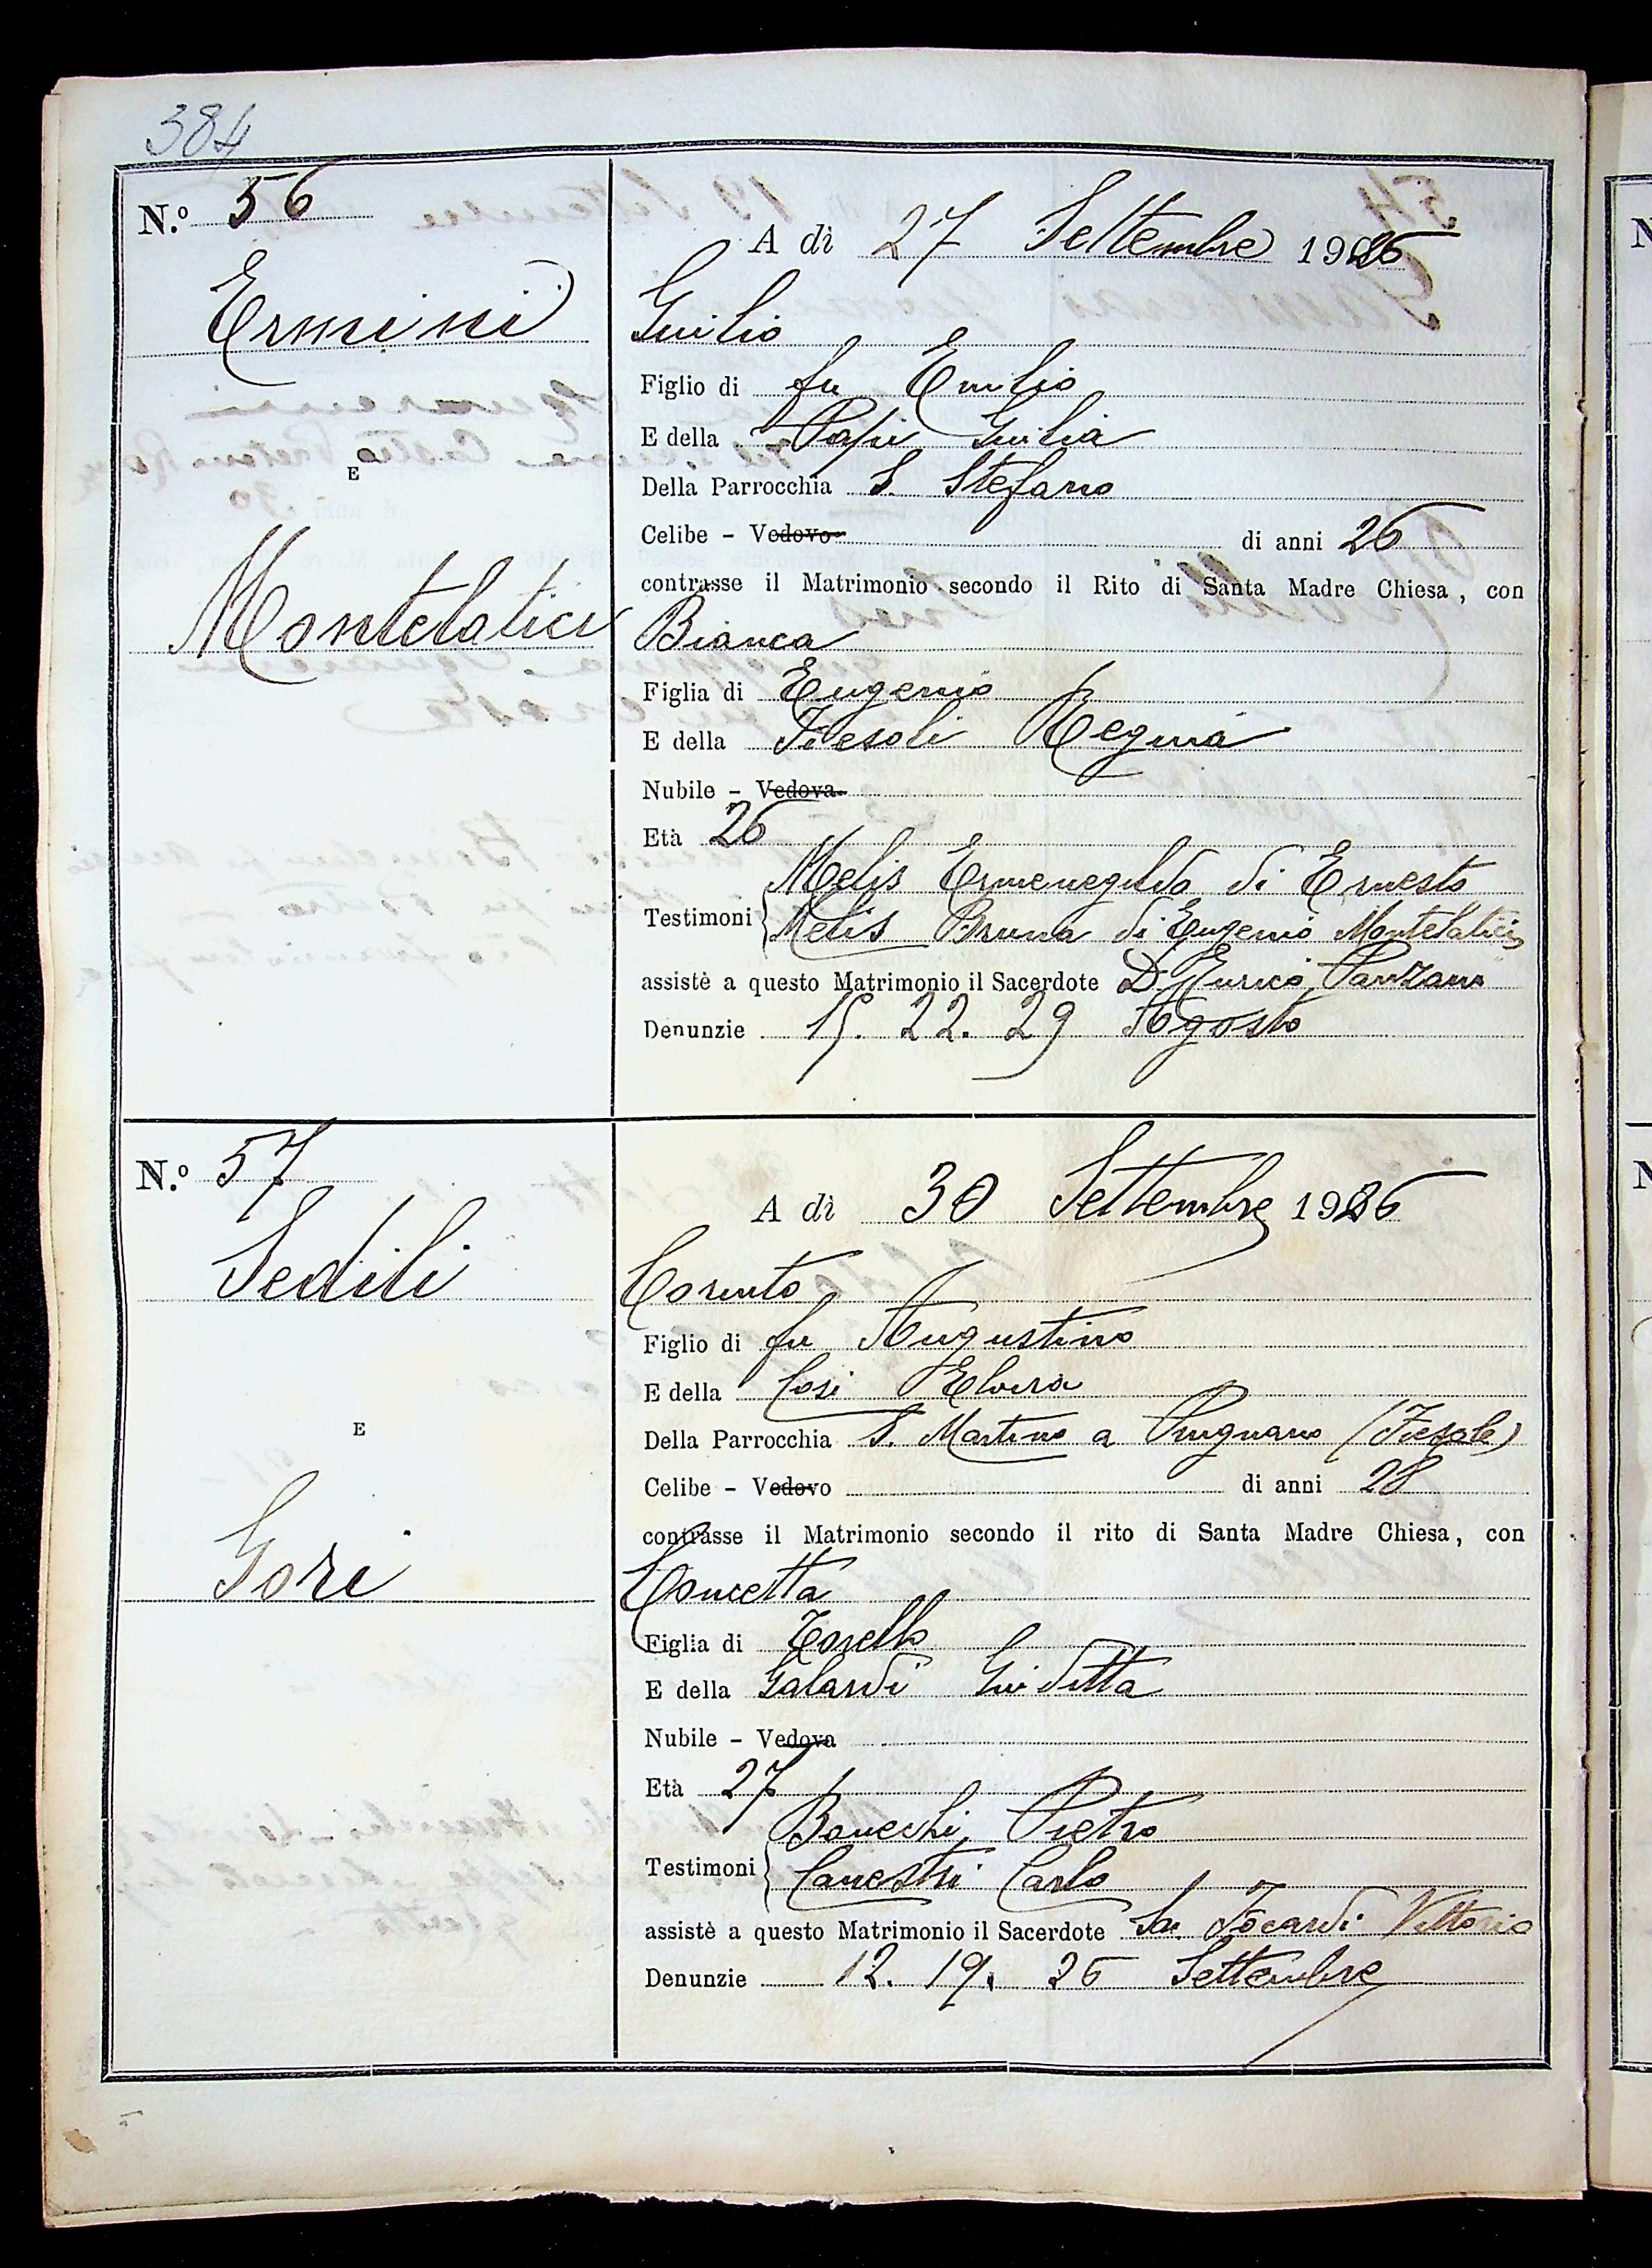 384
N.º 56
A dì 27 Settembre 1926
Ermini
Giulio
Figlio di fu Emilio
E della Papi Giulia
Della Parrocchia S. Stefano
E
Celibe - Vedovo di anni 26
contrasse il Matrimonio secondo il Rito di Santa Madre Chiesa, con
Montelatici
Bianca
Figlia di Eugenio
E della Fiesoli Regina
Nubile - Vedova
Età 26
Melis Ermenegildo di Ernesto
Testimoni
Melis Bruna di Eugenio Montelatici
assistè a questo Matrimonio il Sacerdote D. Enrico Panzani
Denunzie 15. 22. 29 Agosto
N.º 57
A dì 30 Settembre 1926
Sedili
Corinto
Figlio di fu Augustino
E della Cosi Elvira
Della Parrocchia S. Martino a (Fiesole)
E
Celibe - Vedovo di anni 28
contrasse il Matrimonio secondo il rito di Santa Madre Chiesa, con
Gori
Concetta
Figlia di Torello
E della Galardi Giuditta
Nubile - Vedova
Età 27
Bonechi Pietro
Testimoni
Canestri Carlo
assistè a questo Matrimonio il Sacerdote Focardi Vittorio
Denunzie 12. 19. 26 Settembre